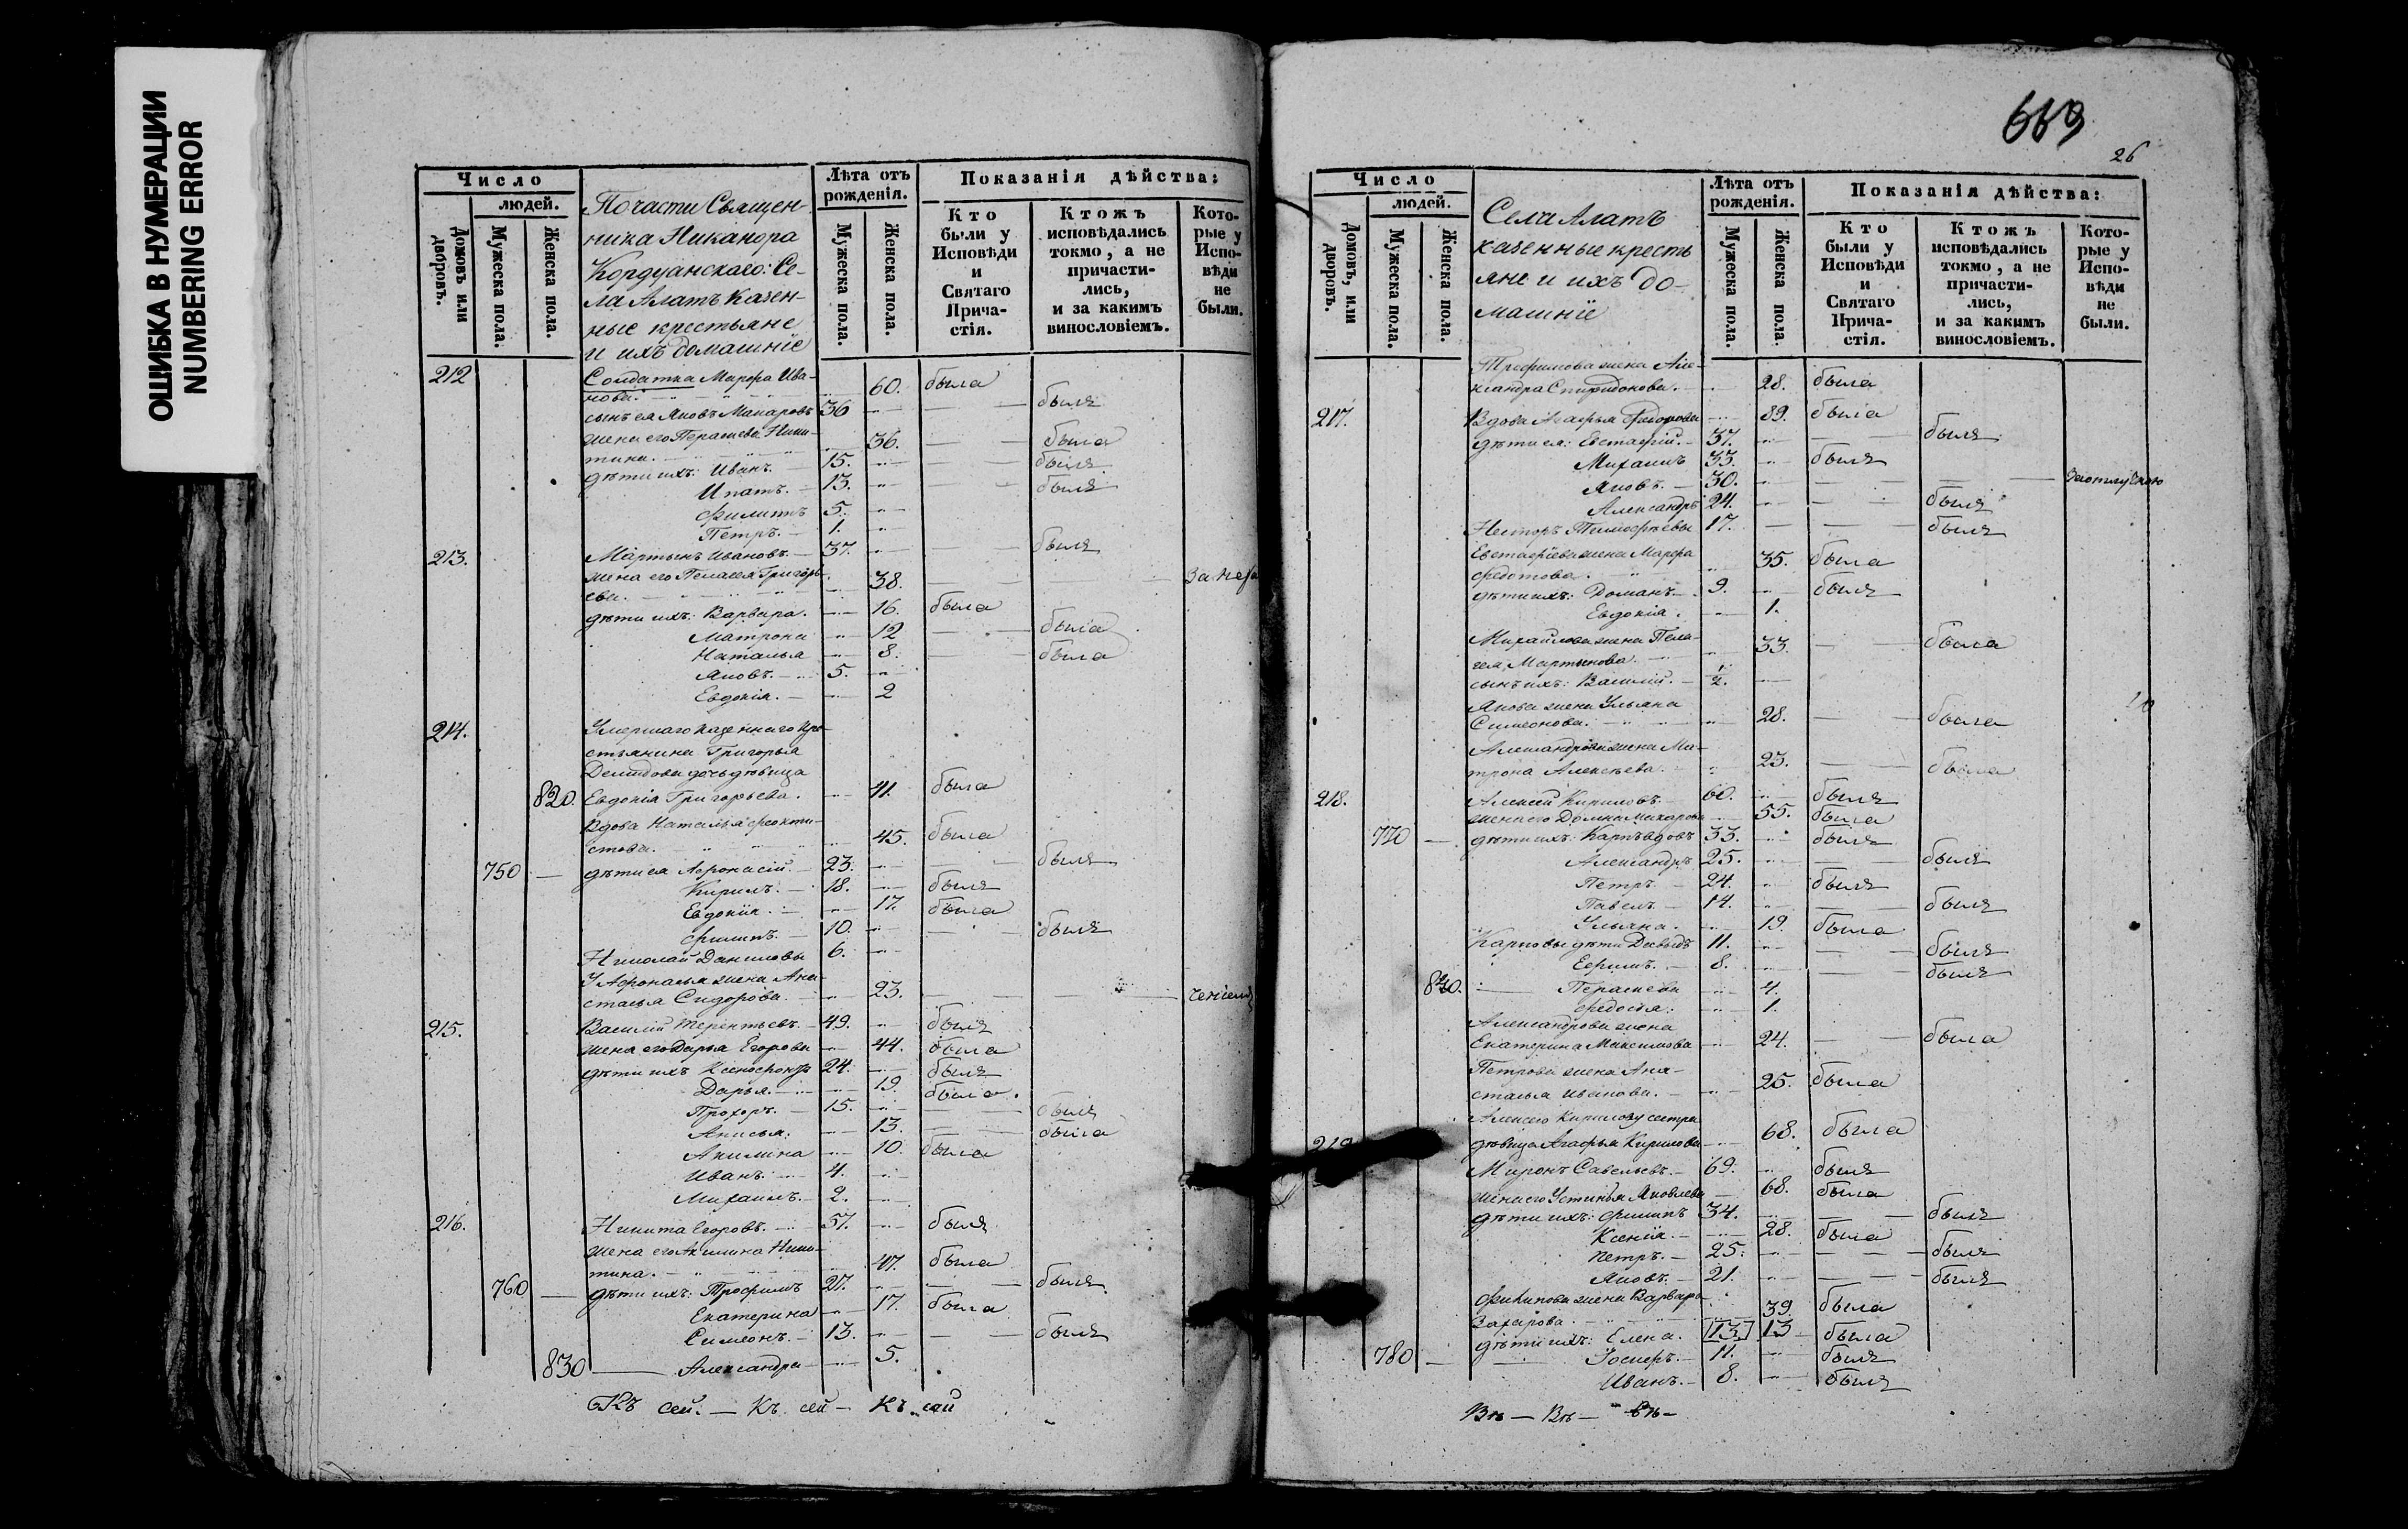 ОШИБКА В НУМЕРАЦИИ
NUMBERING ERROR
Число
людей.
Домовъ или дворовъ.
Мужеска пола.
Женска пола.
По части Священ-
ника Никанора
Кордуанскаго: Се-
ла Алатъ казен-
ные крестьяне
и ихъ домашніе
Лѣта отъ рожденія.
Мужеска пола.
Женска пола.
Показанія дѣйства:
Кто были у Исповѣди и Святаго Прича-стія.
Ктожъ исповѣдались токмо, а не причасти-лись, и за какимъ винословіемъ.
Кото-рые у Испо-вѣди не были.
212 Солдатка Марфа Ива-
нова. 60. была
сынъ ея Яковъ Макаровъ 36 былъ
жена его Парасковья Ники-
тина. 36. была
дѣти ихъ: Иванъ. 15. былъ
Ипатъ. 13. былъ
Филиппъ 5.
Петръ. 1.
213. Мартынъ Ивановъ. 37. былъ
жена его Пелагея Григорь-
ева. 38.
дѣти ихъ: Варвара. 16. была
Матрона 12 была
Наталья 8. была
Яковъ. 5.
Евдокія. 2
214. Умершаго казеннаго кре-
стьянина Григорья
Демидова дочь дѣвица
820. Евдокія Григорьева. 41. была
Вдова Наталья Феокти-
стова. 45. была
750 дѣти ея Афонасій. 23. былъ
Кирилъ. 18. былъ
Евдокія. 17. была
Филипъ. 10. былъ
Николай Даниловы 6.
У Афонасья жена Ана-
стасья Сидорова. 23.
215. Василій Терентьевъ. 49. былъ
жена его Дарья Егорова 44. была
дѣти ихъ Ксенофонтъ 24. былъ
Дарья. 19. была.
Прохоръ. 15. былъ
Анисья. 13. была
Акилина 10. была
Иванъ. 4.
Михаилъ. 2.
216. Никита Егоровъ. 57. былъ
жена его Акилина Ники-
тина. 47. была
760 дѣти ихъ: Трофимъ 27. былъ
Екатерина 17. была
Симеонъ. 13. былъ
830 Александра 5.
Къ сей. — Къ сей — Къ сей
26
Число
людей.
Домовъ, или дворовъ.
Мужеска пола.
Женска пола.
Села Алатъ
казенные кресть
яне и ихъ до-
машніе
Лѣта отъ рожденія.
Мужеска пола.
Женска пола.
Показанія дѣйства:
Кто были у Исповѣди и Святаго Прича-стія.
Ктожъ исповѣдались токмо, а не причасти-лись, и за какимъ винословіемъ.
Кото-рые у Испо-вѣди не были.
Трофимова жена Але-
ксандра Спиридонова. 28. была
217. Вдова Агафья Федорова 89. была
дѣти ея: Евстафій. 37. былъ
Михаилъ 33. былъ
Яковъ. 30. за отлучкою
Александръ 24. былъ
Несторъ Тимофѣевы 17. былъ
Евстафіева жена Марфа
Федотова. 35. была
дѣти ихъ: Доманъ. 9. былъ
Евдокія. 1.
Михайлова жена Пела-
гея Мартынова. 33. была
сынъ ихъ: Василій. 1/2.
Якова жена Ульяна
Симеонова. 28. была
Александрова жена Ма-
трона Алексѣева. 23. была
218. Алексѣй Кириловъ. 60. былъ
жена его Домна Макарова 55. была
770 дѣти ихъ: Карпъ вдовъ 33. былъ
Александръ 25. былъ
Петръ. 24. былъ
Павелъ. 14. былъ
Ульяна. 19. была
Карповы дѣти Давыдъ 11. былъ
Ефимъ. 8. былъ
Парасковья 4.
Федосья. 1.
Александрова жена
Екатерина Максимова 24. была
Петрова жена Ана-
стасья Иванова. 25. была
Алексѣю Кирилову сестра
дѣвица Агафья Кирилова 68. была
219 Миронъ Савельевъ. 69. былъ
жена его Устинья Яковлева 68. была
дѣти ихъ: Филипъ 34. былъ
Ксенія. 28. была
Петръ. 25. былъ
Яковъ. 21. былъ
Филипова жена Варвара
Захарова. 39. была
дѣти ихъ: Елена. [13.] 13 была
780 Іосифъ. 11. былъ
Иванъ. 8. былъ
Вѣ — Вѣ — Вѣ —